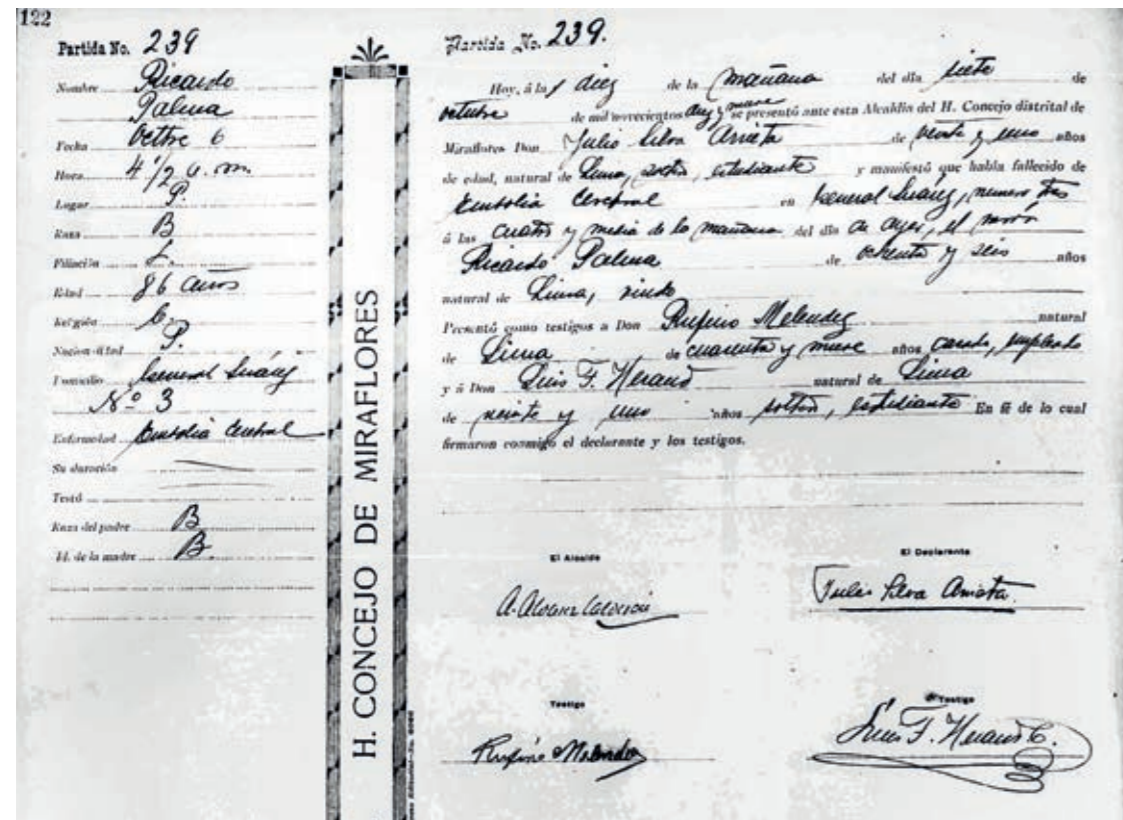 122
Partida No. 239
Nombre Ricardo
Palma
Fecha Octbre 6
Hora 4 1/2 a. m.
Lugar P.
Raza B
Filiación L.
Edad 86 años
Religión C.
Nacionalidad P.
Domicilio General Suárez
Nº 3
Enfermedad Embolia Cerebral
Su duración
Testó
Raza del padre B
Id. de la madre B.
H. CONCEJO DE MIRAFLORES
Partida No. 239.
Hoy, á las diez de la mañana del día siete de
octubre de mil novecientos diez y nueve se presentó ante esta Alcaldía del H. Concejo distrital de
Miraflores Don Julio Silva Arrieta de veinte y uno años
de edad, natural de Lima, soltero, estudiante y manifestó que había fallecido de
Embolia Cerebral en General Suarez, numero tres
á las cuatro y media de la mañana del día de ayer, el varón
Ricardo Palma de ochenta y seis años
natural de Lima, viudo
Presentó como testigos a Don Rufino Melendez natural
de Lima de cuarenta y nueve años casado, empleado
y á Don Luis F. Heraud natural de Lima
de veinte y uno años soltero, estudiante En fé de lo cual
firmaron conmigo el declarante y los testigos.
El Alcalde
El Declarante
A. Alvarez Calderón
Julio Silva Arrieta.
Testigo
Testigo
Rufino Melendez
Luis F. Heraud C.